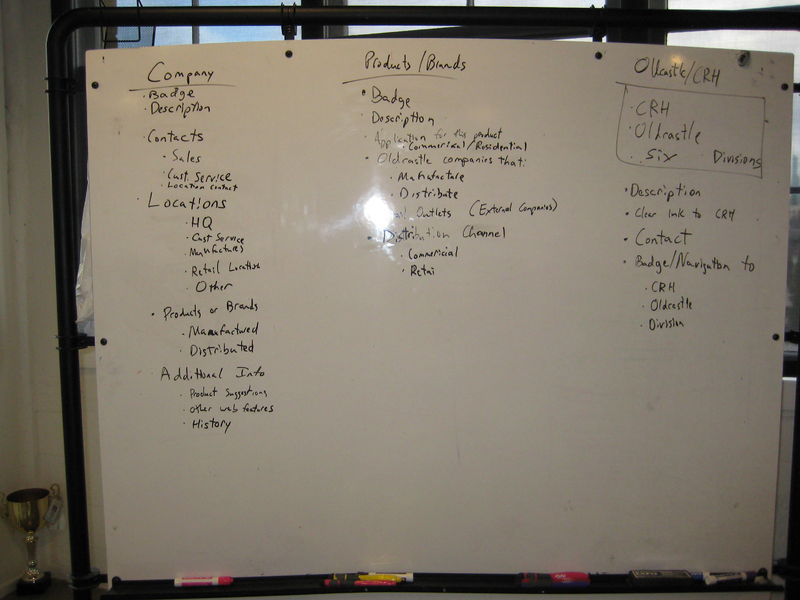 Company
· Badge
· Description
· Contacts
· Sales
· Cust. Service
· Location contact
· Locations
· HQ
· Cust Service
· Manufactures
· Retail Location
· Other
· Products or Brands
· Manufactured
· Distributed
· Additional Info
· Product Suggestions
· Other web features
· History
Products/Brands
· Badge
· Description
· Application for this product
· Commerical/Residential
· Oldcastle companies that:
· Manufacture
· Distribute
Outlets (External Companies)
· Distribution Channel
· Commerical
· Retail
Oldcastle/CRH
· CRH
· Oldcastle
· Six Divisions
· Description
· Clear link to CRH
· Contact
· Badge/Navigation to
· CRH
· Oldcastle
· Division